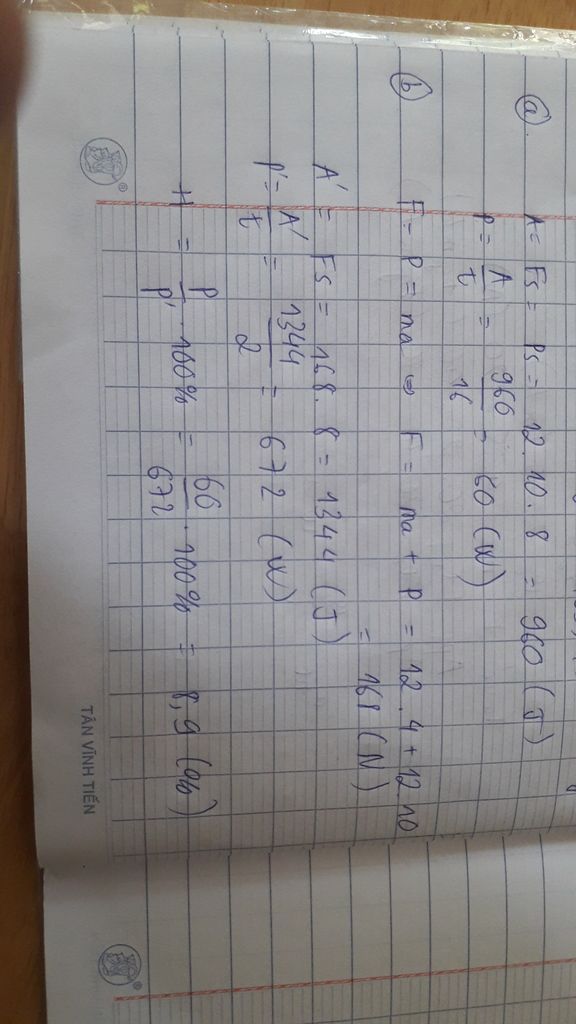 ⓐ. A = Fs = Ps = 12.10.8 = 960 (J)
P = A/t = 960/16 = 60 (W)
ⓑ F - P = ma ⇔ F = ma + P = 12.4 + 12.10
= 168 (N)
A' = Fs = 168.8 = 1344 (J)
P' = A'/t = 1344/2 = 672 (W)
H = P/P' . 100% = 60/672 . 100% = 8,9 (%)
TÂN VĨNH TIẾN